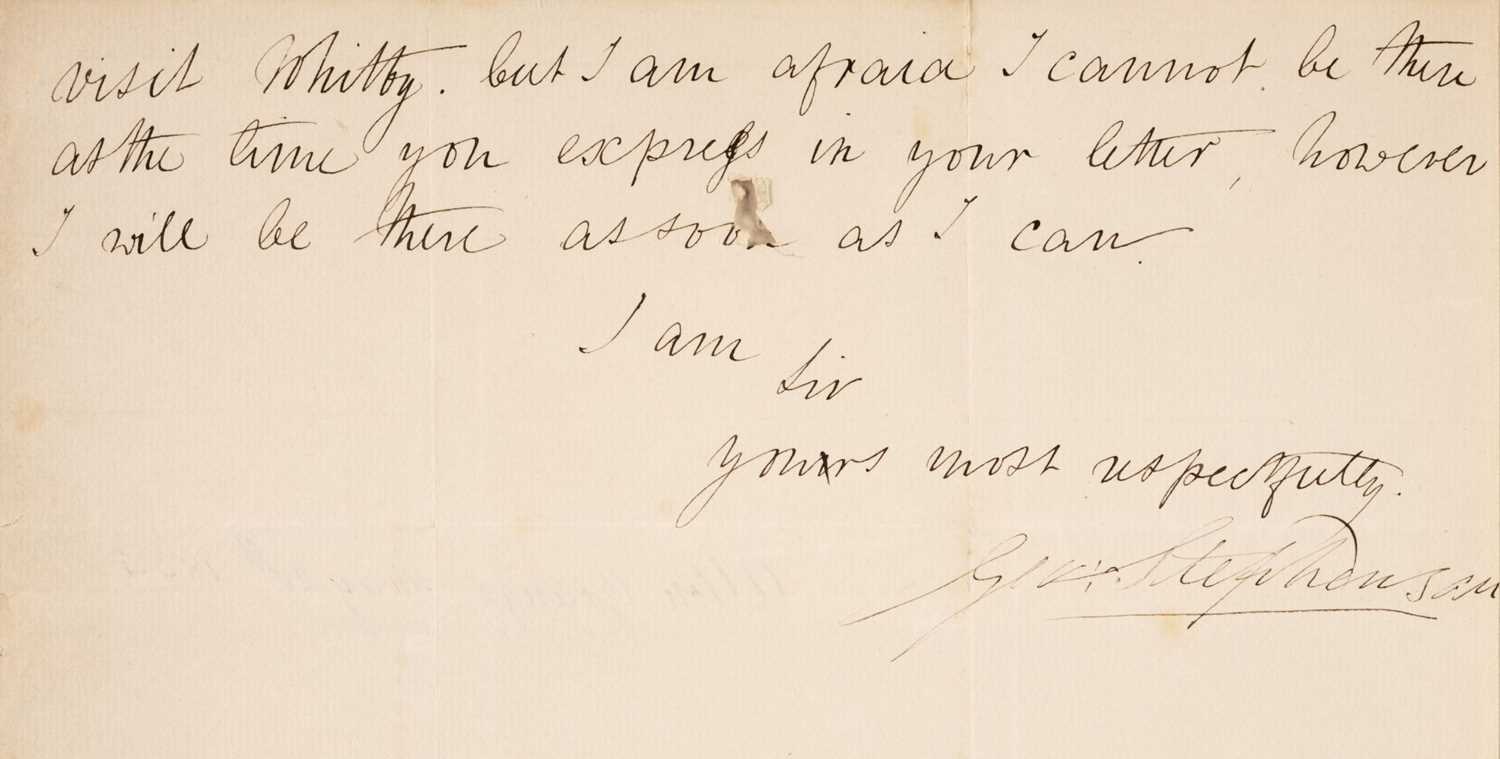 visit Whitby. but I am afraid I cannot. be there
as the time you express in your letter, however
I will be there as soon as I can.
I am
Sir
yours most respectfully.
Geo. Stephenson